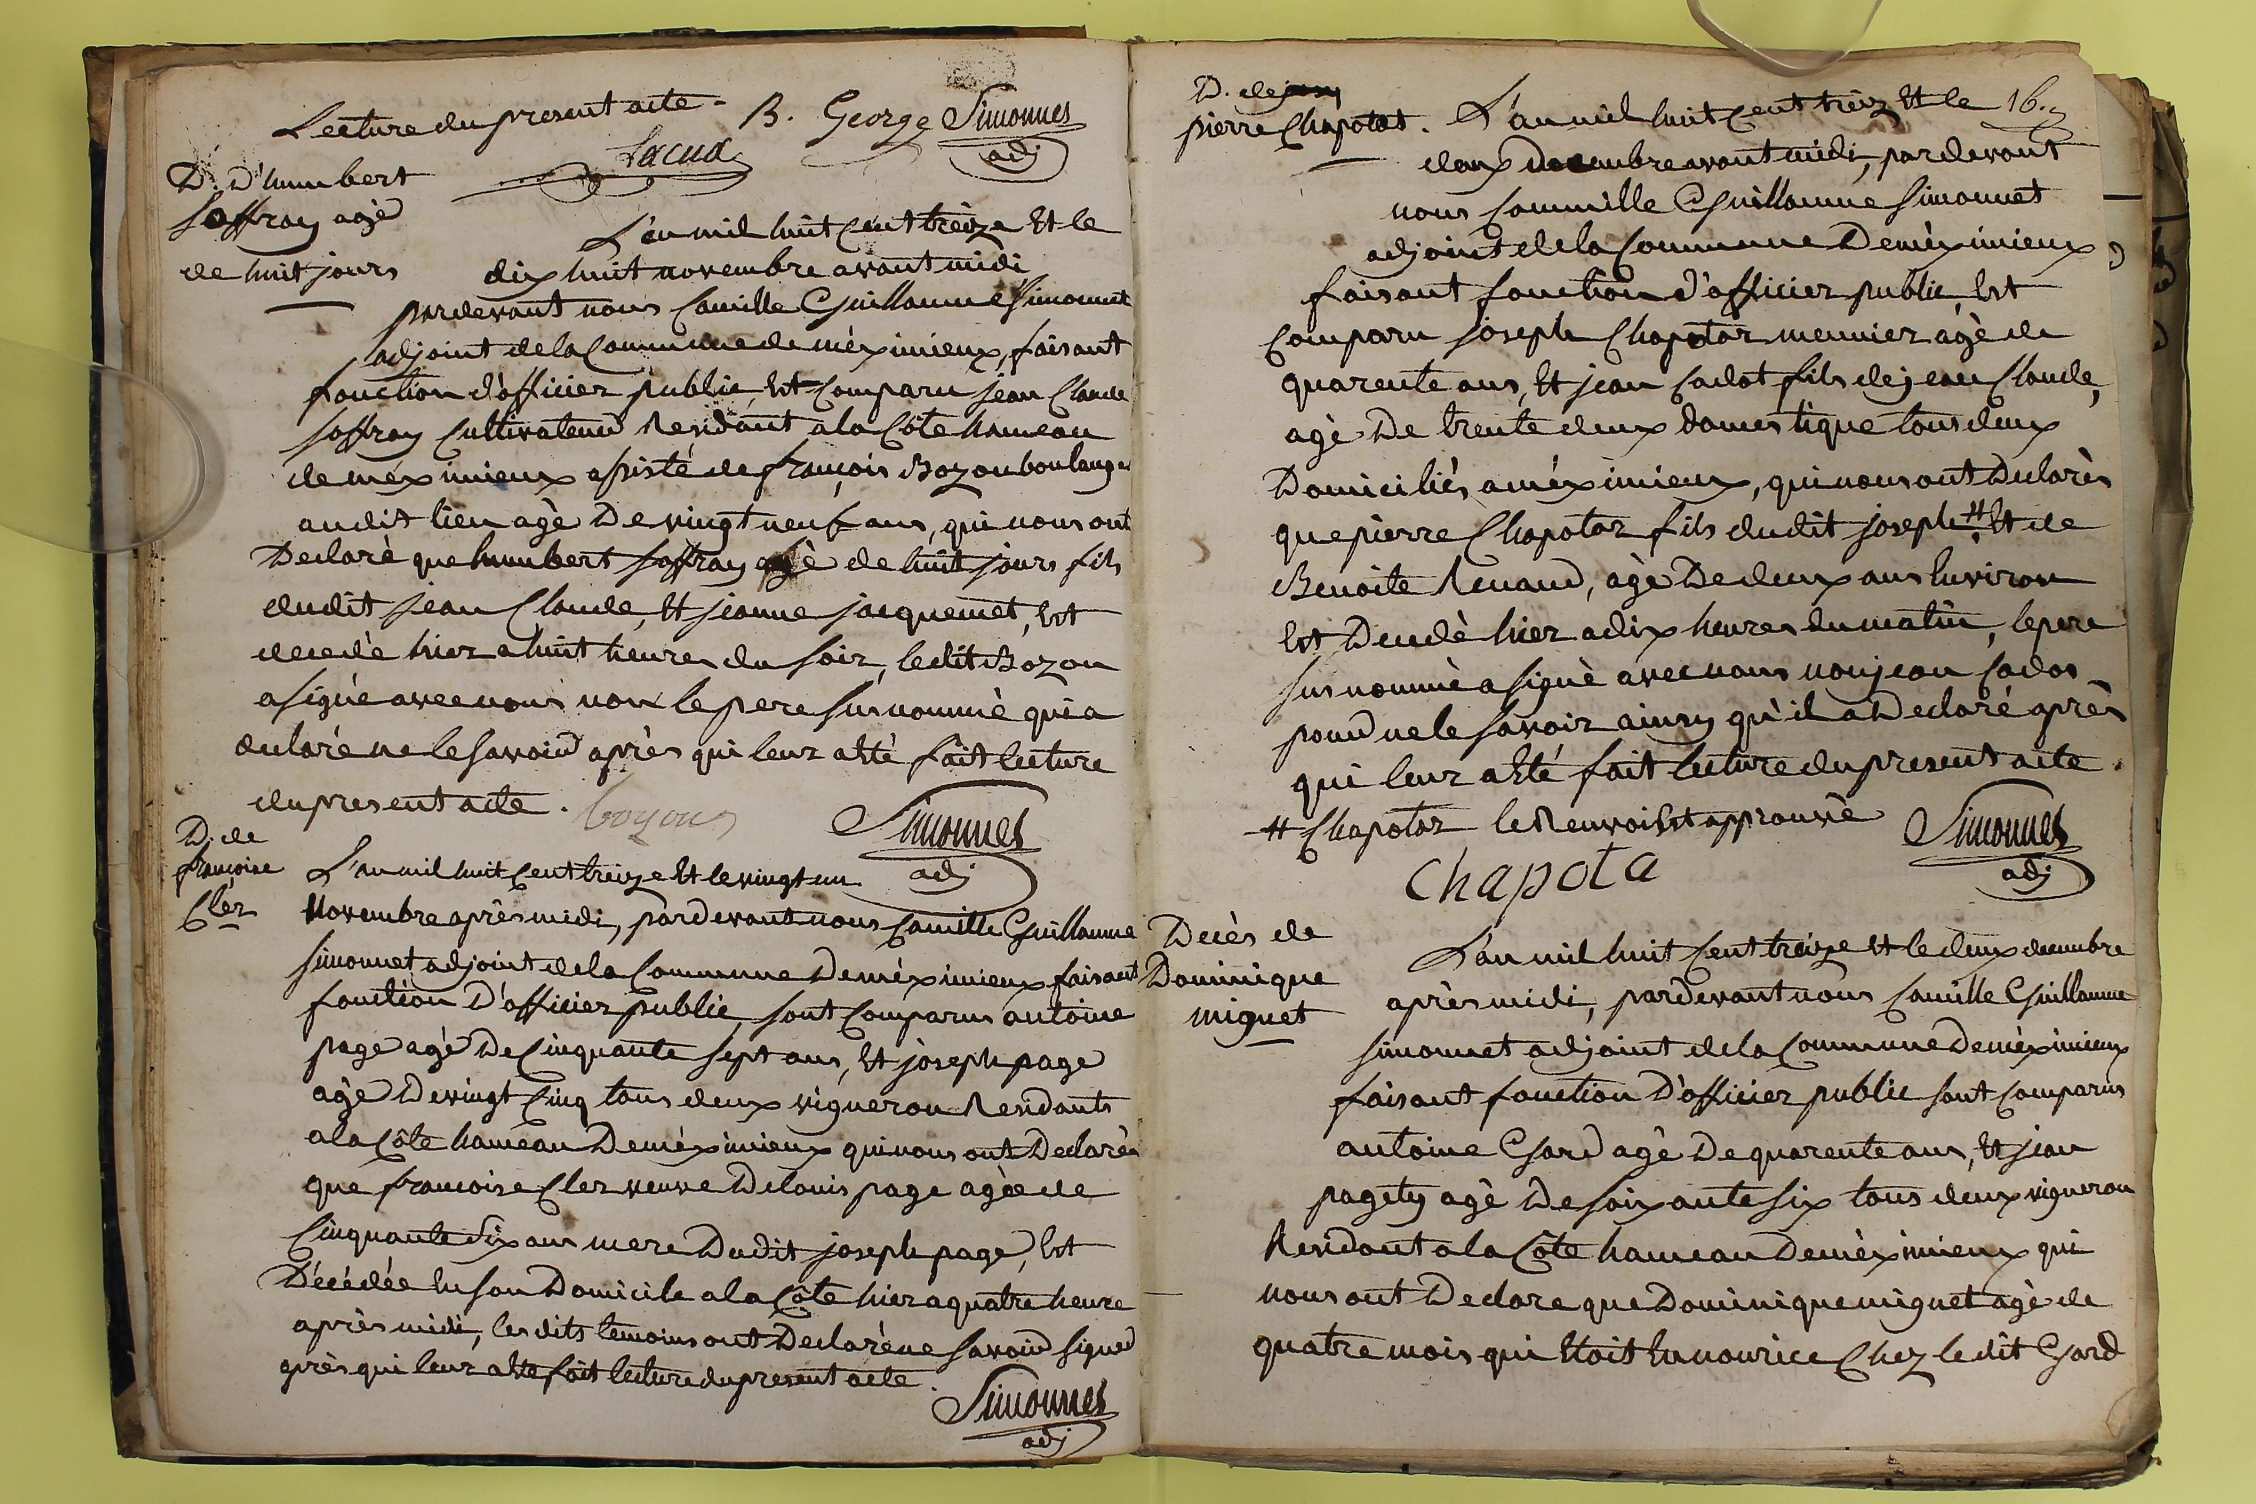 Lecture du present acte - B. George Simonnet
Lacua adj
D. D'humbert
Joffray agè
de huit jours
L'an mil huit Cent treize Et le
dix huit novembre avant midi
pardevant nous Camille Guillaume Simonnet
adjoint de la Commune de méximieux, faisant
fonction d'officier public, Est Comparu jean Claude
Joffray Cultivateur Residant a la Côte hameau
de méximieux assisté de françois Bozon boulanger
audit lieu agè De vingt neuf ans, qui nous ont
Declaré que humbert Joffray agè de huit jours fils
dudit jean Claude, Et jeanne jacquemet, Est
decedè hier a huit heures du soir, ledit Bozon
a signé avec nous non le pere susnommè qui a
declaré ne le savoir après qui leur a Eté fait lecture
du present acte. bozon Simonnet
adj
D. de
françoise
Cler
L'an mil huit Cent treize Et le vingt un
Novembre après midi, pardevant nous Camille Guillaume
Simonnet adjoint de la Commune De méximieux faisant
fonction D'officier public, sont Comparus antoine
page agè De Cinquante sept ans, Et joseph page
agè De vingt Cinq tous deux vigneron Residants
a la Côte hameau De méximieux qui nous ont Declarès
que françoise Cler veuve De louis page agèe de
Cinquante Six ans mere Dudit joseph page, Est
Décédée En son Domicile a la Côte hier a quatre heure
après midi, les dits temoins ont Declaré ne savoir signer
après qui leur a Eté fait lecture du present acte.
Simonnet
adj
16.
D. de
pierre Chapotat.
L'an mil huit Cent treiz Et le
deux Decembre avant midi, pardevant
nous Cammille Guillaume Simonnet
adjoint de la Commune De méximieux
faisant fonction d'officier public, Est
Comparu joseph Chapotar meunier agè de
quarente ans, Et jean Cadot fils de jean Claude,
agè De trente deux domestique tous deux
Domiciliés a méximieux, qui nous ont Declarès
que pierre Chapotar fils dudit joseph # Et de
Benoite Renaud, agè De deux ans Environ
Est Decedè hier a dix heures du matin, le pere
susnommè a signè avec nous non jean Cadot
pour ne le savoir ainsy qu'il a Declaré après
qui leur a Eté fait lecture du present acte.
# Chapotar le Renvoi Est approuvè Simonnet
adj
Chapota
Decès de
Dominique
miguet
L'an mil huit Cent treize Et le deux decembre
après midi, pardevant nous Camille Guillaume
Simonnet adjoint de la Commune De méximieux
faisant fonction D'officier public sont Comparus
antoine Gard agè De quarente ans, Et jean
pagety agè De soixante six tous deux vigneron
Residant a la Côte hameau De méximieux qui
nous ont Declare que Dominique miguet agè de
quatre mois qui Etoit En nourice Chez ledit Gard